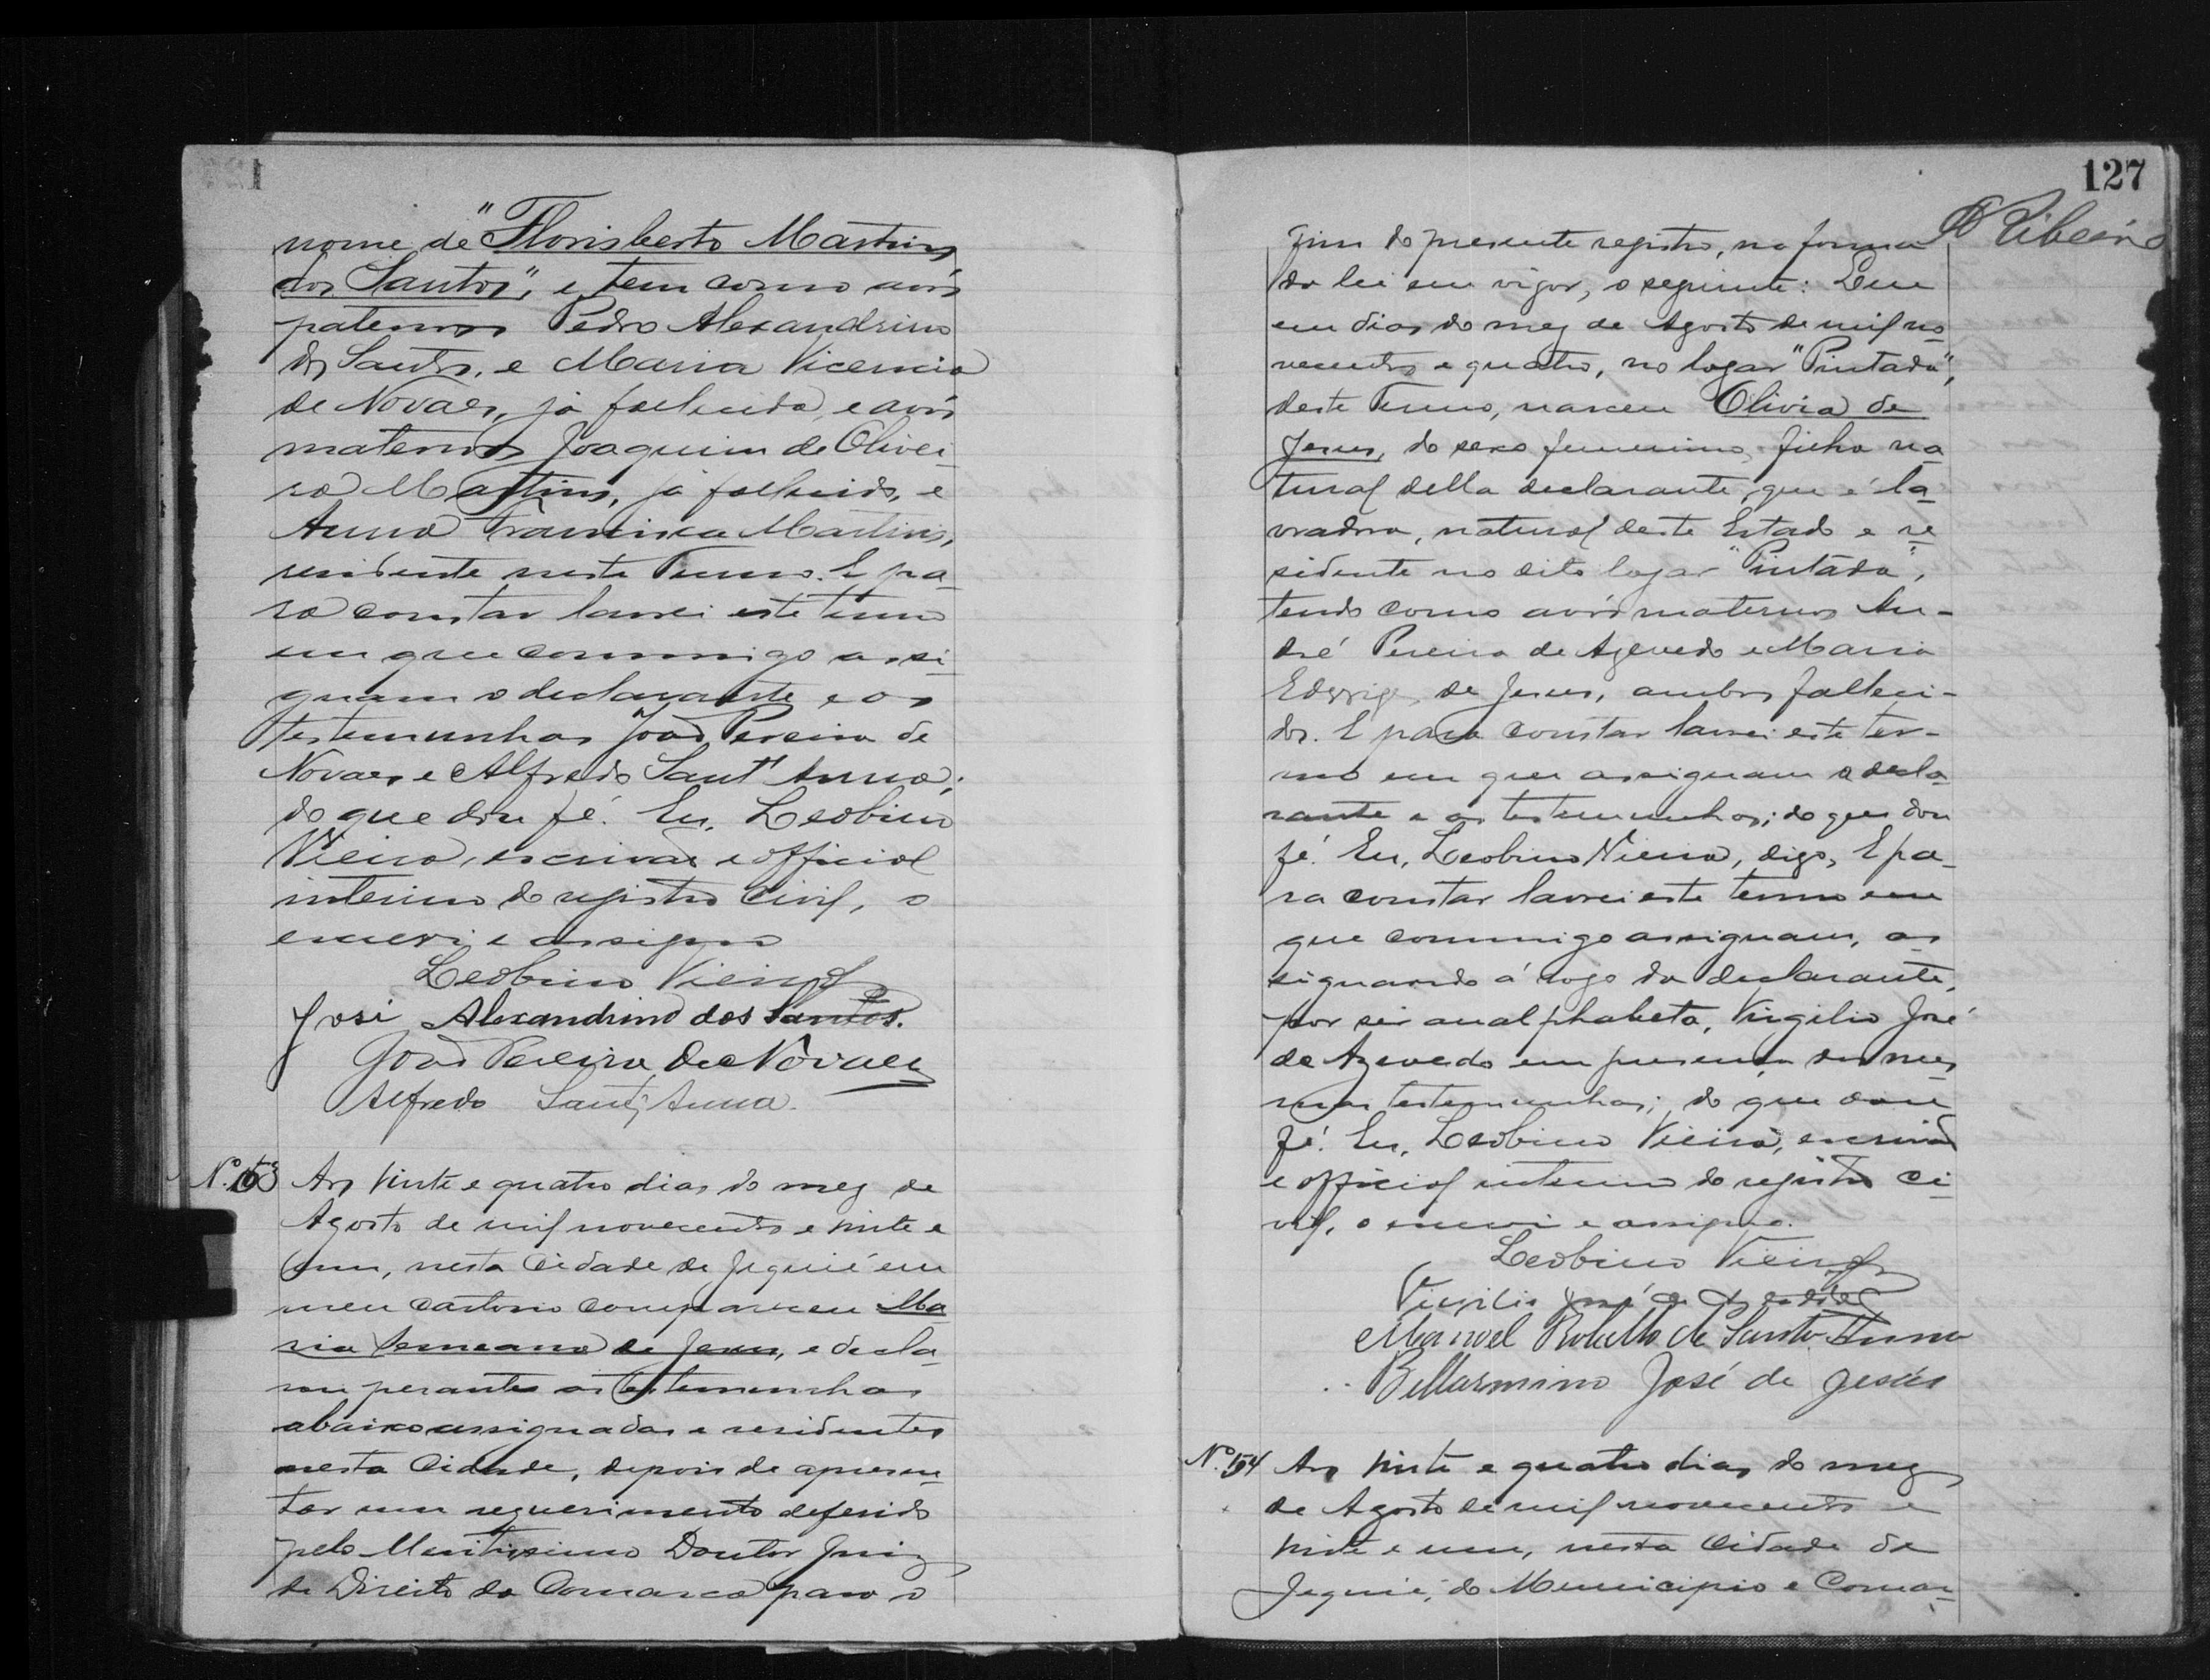 nome de "Florisberto Martins
dos Santos", e tem como avós
paternos Pedro Alexandrino
dos Santos, e Maria Vicencia
de Novaes, já fallecida, e avós
maternos Joaquim de Olivei-
ra Martins, já fallecido, e
Anna Francisca Martins,
residente neste Termo. E pa-
ra constar lavrei este termo
em que commigo assi-
gnam o declarante e os
testemunhas João Pereira de
Novaes e Alfredo Sant'Anna;
do que dou fé. Eu, Leobino
Vieira, escrivão e official
interino do registro civil, o
escrevi e assigno
Leobino Vieira
José Alexandrino dos Santos.
João Pereira de Novaes
Alfredo Sant'Anna.
Nº 153 Aos vinte e quatro dias do mez de
Agosto de mil novecentos e vinte e
um, nesta Cidade de Jequié em
meu cartorio compareceu Ma
ria de Jesus, e decla-
rou perante as testemunhas
abaixo assignadas e residentes
nesta Cidade, depois de apresen
tar um requerimento deferido
pelo Meritissimo Doutor Juiz
de Direito da Comarca para o
127
Ribeiro
fim do presente registro, na forma
da lei em vigor, o seguinte: Que
em dias do mez de Agosto de mil no
vecentos e quatro, no logar "Pintada",
deste Termo, nasceu Olivia de
Jesus, do sexo femenino, filha na
tural della declarante, que é la-
vradora, natural deste Estado e re
sidente no dito logar "Pintada",
tendo como avós maternos An-
dré Pereira de Azevedo e Maria
Edwiges de Jesus, ambos falleci-
dos. E para constar lavrei este ter-
mo em que assignam a decla-
rante e as testemunhas; do que dou
fé. Eu, Leobino Vieira, digo, E pa-
ra constar lavrei este termo em
que commigo assignam, as
signando á rogo da declarante,
por ser analphabeta, Virgilio José
de Azevedo em presença das mes
mas testemunhas; do que dou
fé. Eu, Leobino Vieira, escrivão
e official interino do registro ci-
vil, o escrevi e assigno.
Leobino Vieira
Virgilio José de Azevedo
Manoel Rabello de Santa Anna
Bellarmino José de Jesus
Nº 154 Aos vinte e quatro dias do mez
de Agosto de mil novecentos e
vinte e um, nesta Cidade de
Jequié, do Municipio e Comar-